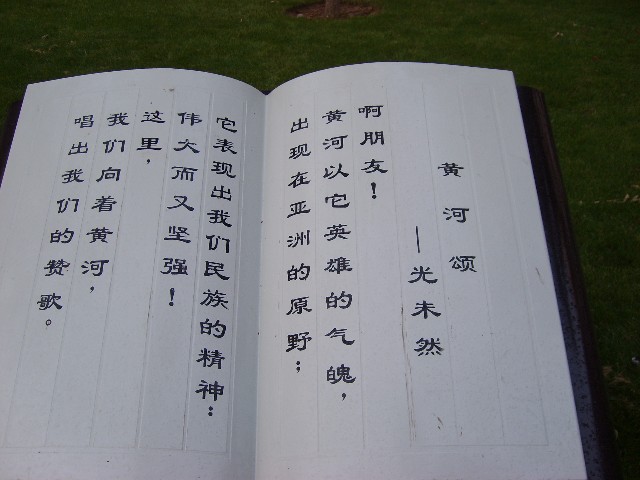 黄河颂
—光未然
啊朋友！
黄河以它英雄的气魄，
出现在亚洲的原野；
它表现出我们民族的精神：
伟大而又坚强！
这里，
我们向着黄河，
唱出我们的赞歌。